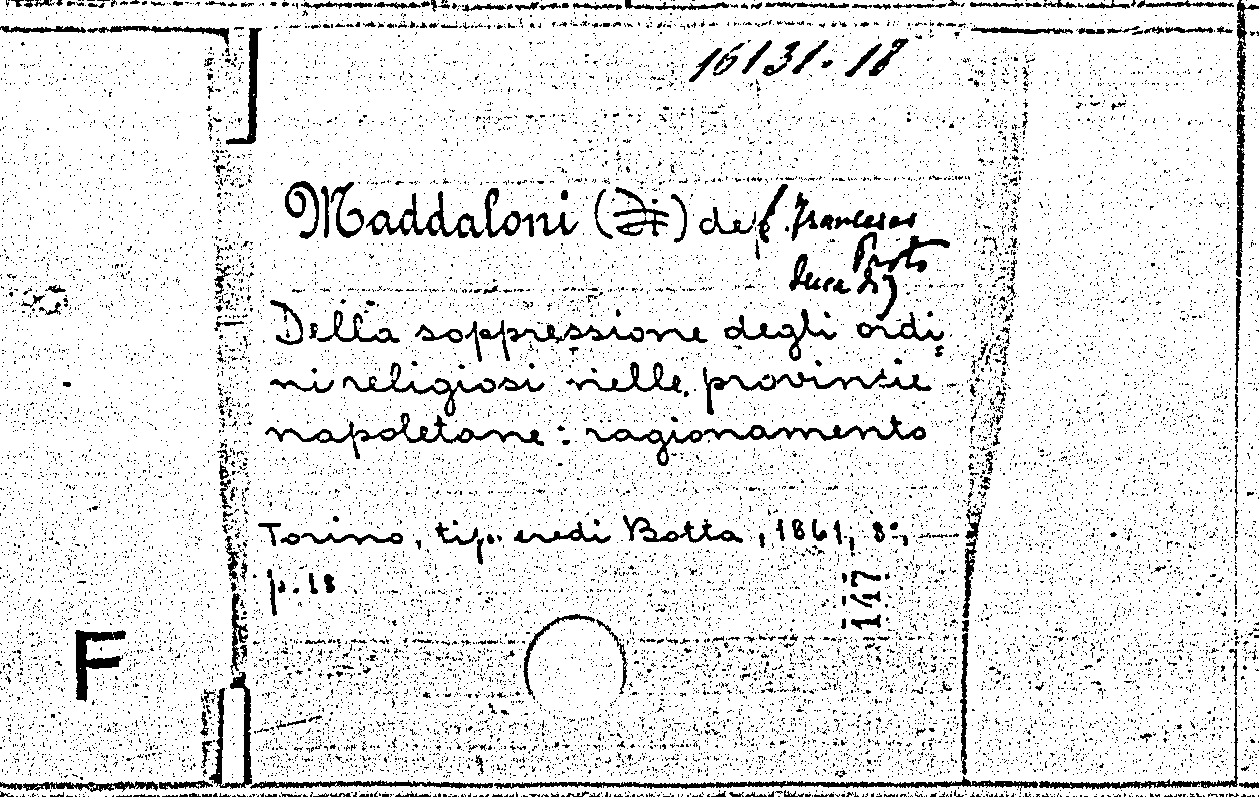 16131.18
Maddaloni (Di) de f. Francesco
Proto
Duca Di
Della soppressione degli ordi
ni religiosi nelle provincie
napoletane: ragionamento
Torino, tip. eredi Botta, 1861, 8°,
p. 18
147
F